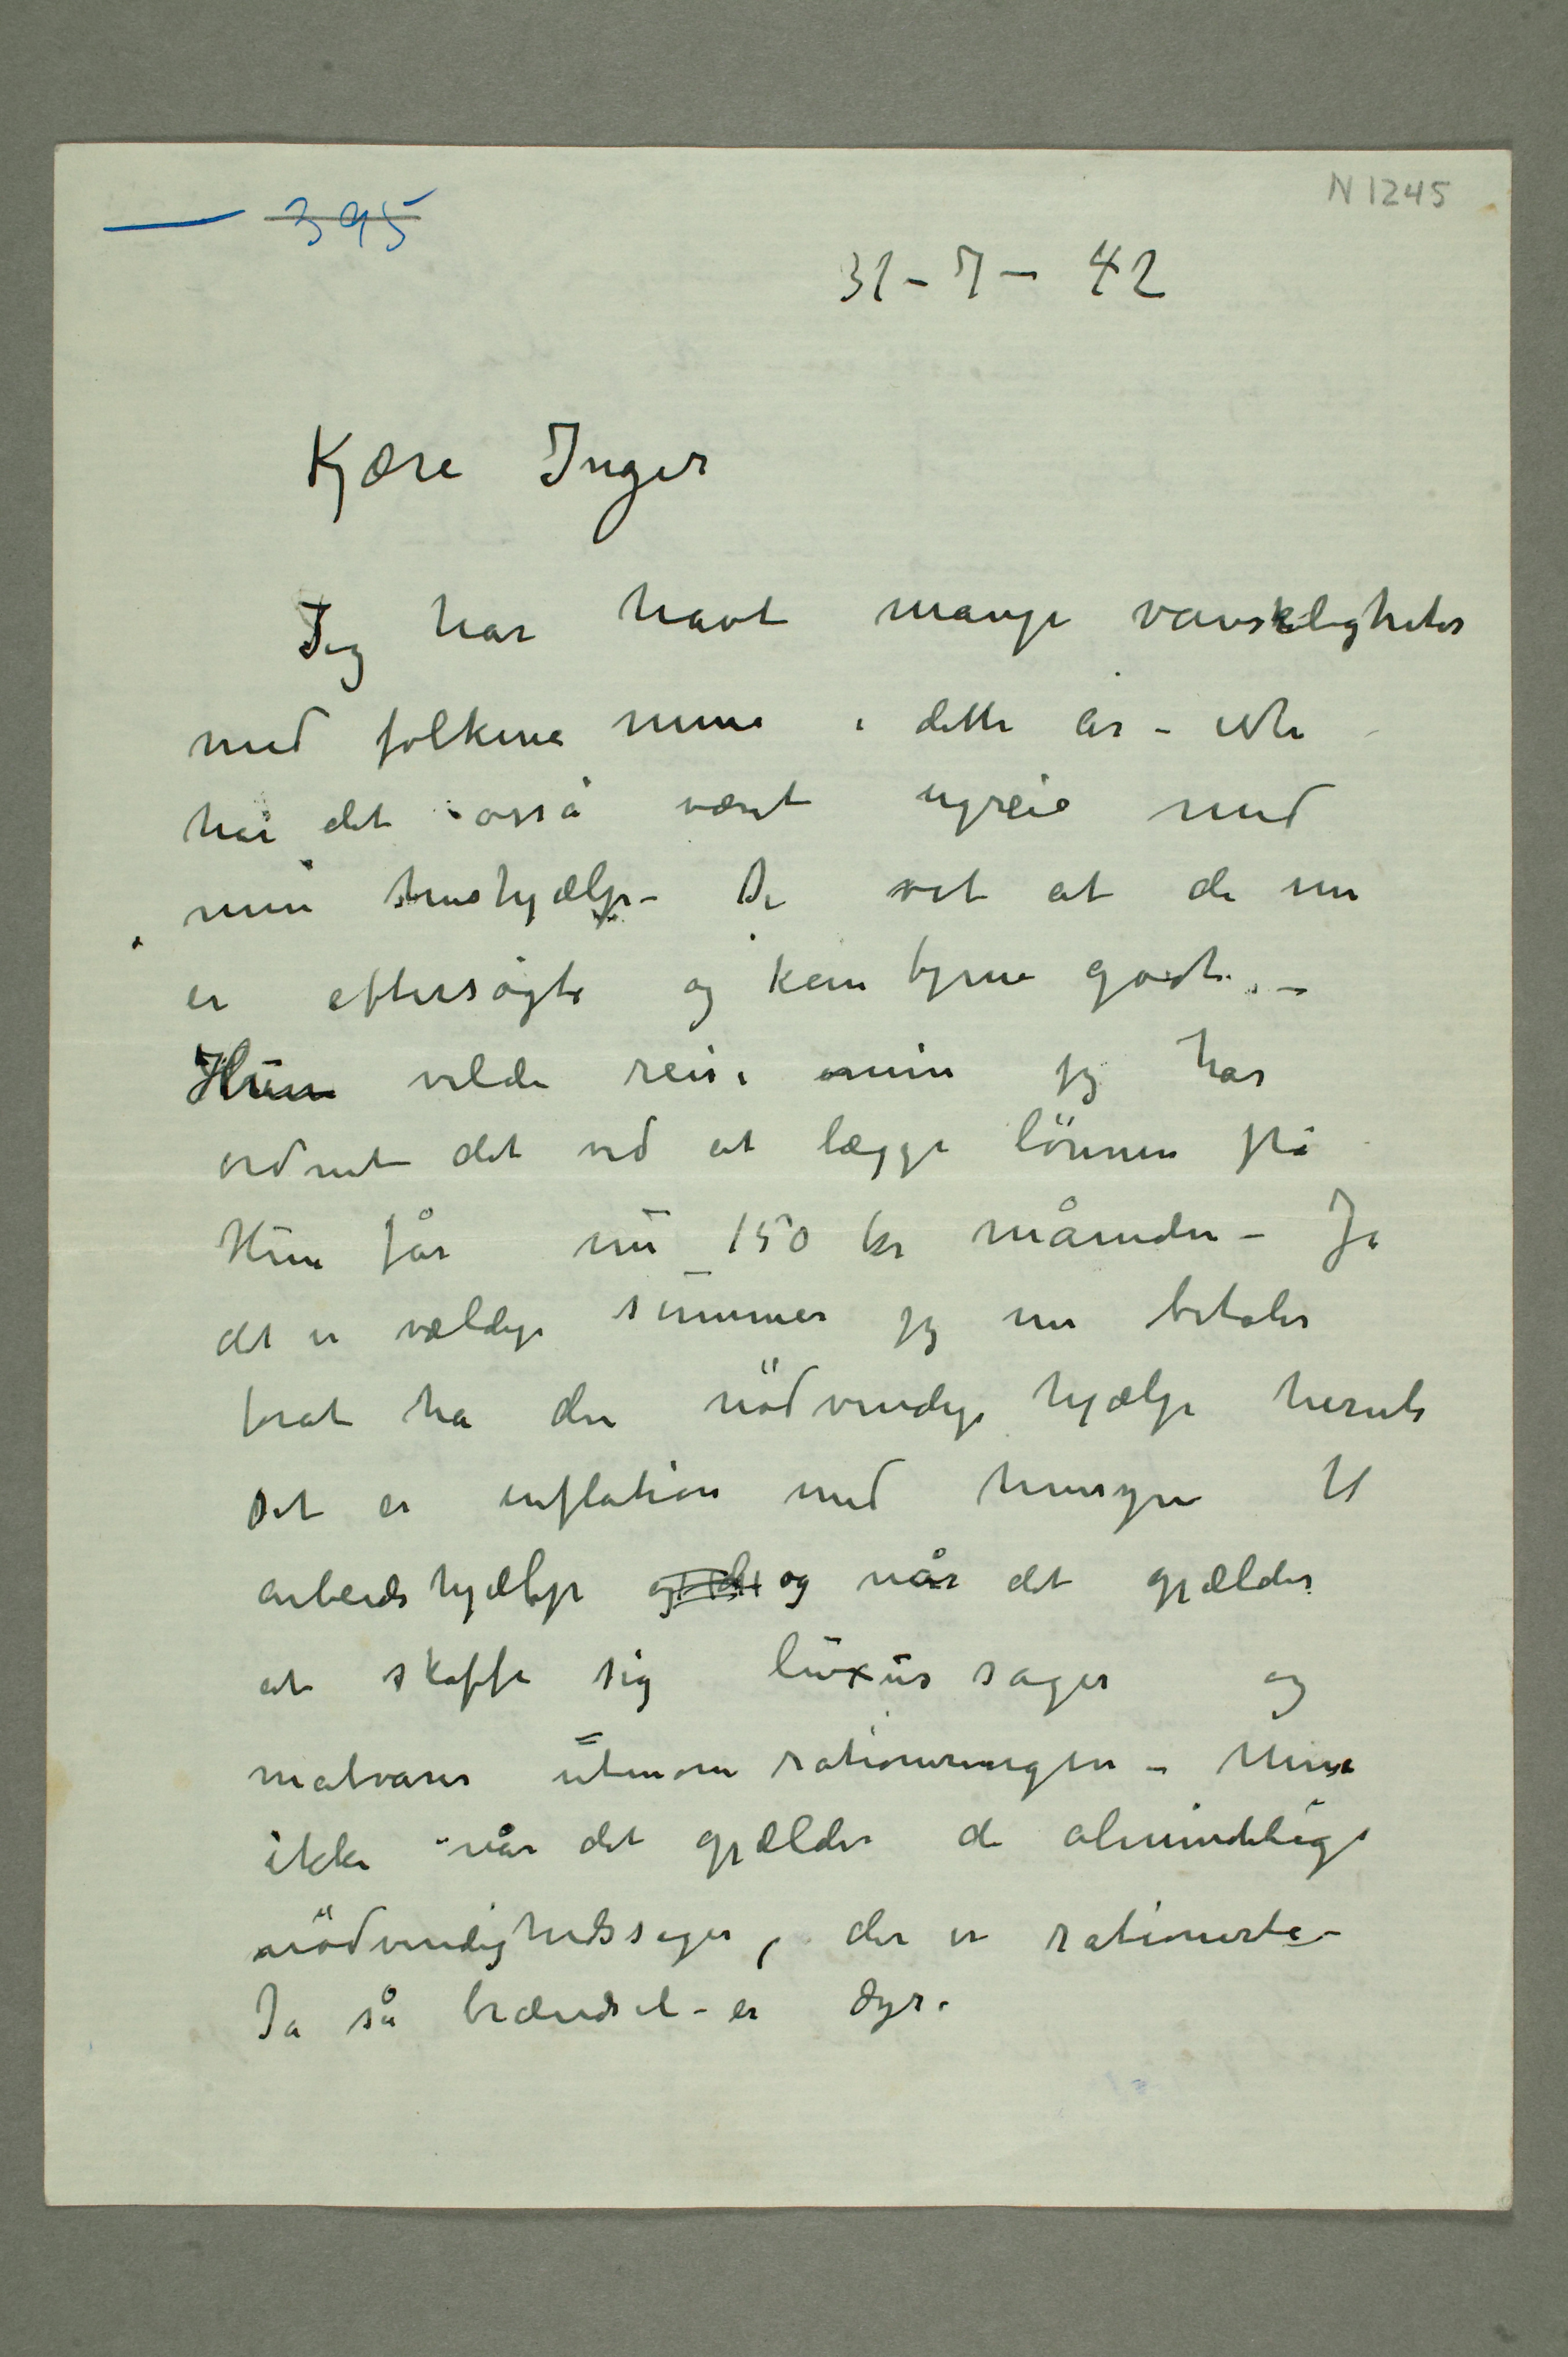 395
N 1245
31-7-42
Kjære Inger
Jeg har havt mange vanskligheter
med folkene mine i dette år –
har det også været ugreie med
min hushjælp – De vet at de nu
er eftersøgte og kan tjene godt. –
Hun vilde reise men jeg har
ordnet det ved at lægge lönnen på
Hun får nu 150 kr måneden – Ja
det er vældige summer jeg nu betaler
forat ha den nödvendige hjælp herute
Det er inflation med hensyn til
arbeidshjælp og når det gjælder
at skaffe sig luxus sager og
matvarer utenom rationeringen – Men
ikke når det gjælder de almindelige
nödvendighedssager, der er rationerte –
Ja så brændsel – er dyr.